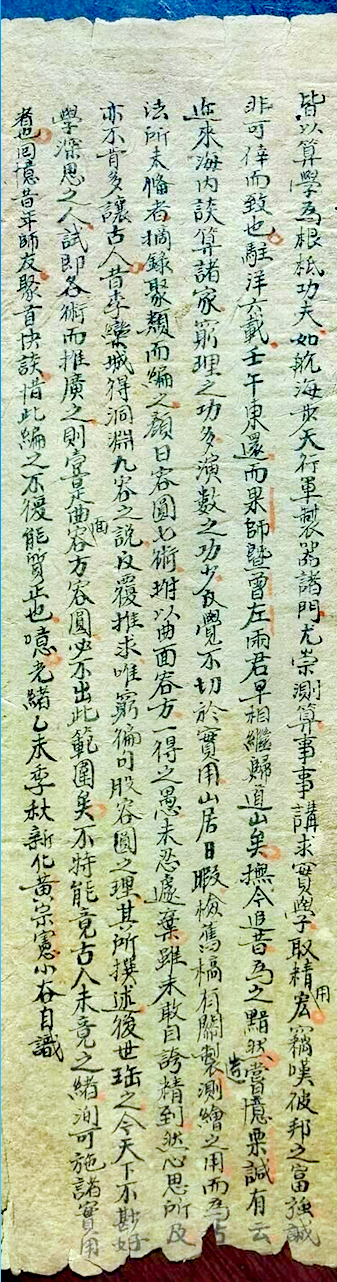 皆以算學為根柢功夫如航海步天行軍製器諸門尤崇測算事事講求實學取精用宏竊嘆彼邦之富強誠
非可倖而致也駐洋六載壬午東還而果師暨曾左兩君早相繼歸道山矣撫今追昔為之黯然嘗憶栗諴有云
近來海內談算諸家窮理之功多演數之功少反覺不切於實用山居日暇檢舊稿有關製造測繪之用而為古
法所未備者摘錄聚類而編之顏曰容圓七術坿以曲面容方一得之愚未忍遽棄雖未敢自誇精到然心思所及
亦不肯多讓古人昔李欒城得洞淵九容之說反覆推求唯窮徧句股容圓之理其所撰述後世珤之今天下不尠好
學深思之人試即各術而推廣之則壹是曲面容方容圓必不出此範圍矣不特能竟古人未竟之緒洵可施諸實用
者也回憶昔年師友聚首快談惜此編之不復能質正也噫光緒乙未季秋新化黃宗憲小谷自識